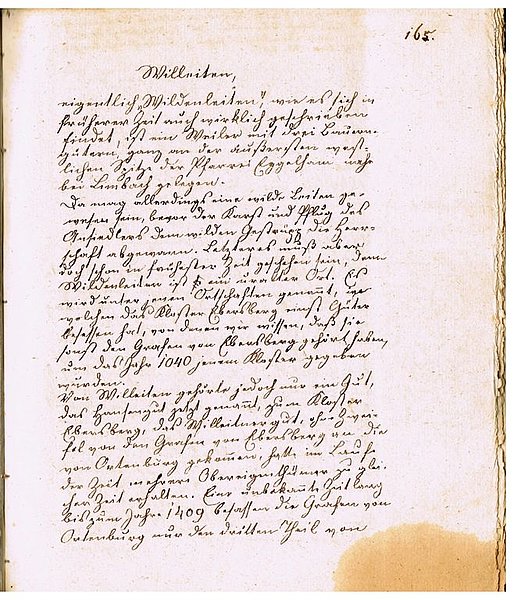 165.
Willeiten,
eigentlich „Wildenleiten", wie es sich in
früherer Zeit auch wirklich geschrieben
findet, ist ein Weiler mit drei Bauern-
gütern ganz an der äußersten west-
lichen Spitze der Pfarrei Egglham nahe
bei Limbach gelegen.
Da mag allerdings eine wilde Leiten ge-
wesen sein, bevor der Karst und Pflug des
Ansiedlers dem wilden Gestrüpp die Herr-
schaft abgewann. Letzteres muß aber
doch schon in frühester Zeit geschehen sein, denn
Wildenleiten ist ein uralter Ort. Es
wird unter jenen Ortschaften genannt, in
welchen das Kloster Ebersberg einst Güter
besessen hat, von denen wir wissen, daß sie
sonst den Grafen von Ebersberg gehört haben,
um das Jahr 1040 jenem Kloster gegeben
wurden.
Von Willeiten gehörte jedoch nur ein Gut,
das Hansengut jetzt genannt, zum Kloster
Ebersberg; das Willeitnergut, ohne Zwei-
fel von den Grafen von Ebersberg an die
von Ortenburg gekommen, hatte im Laufe
der Zeit mehrere Obereigenthümer zu glei-
cher Zeit erhalten. Eine unbekannte Zeit lang
bis zum Jahre 1409 besassen die Grafen von
Ortenburg nur den dritten Theil von